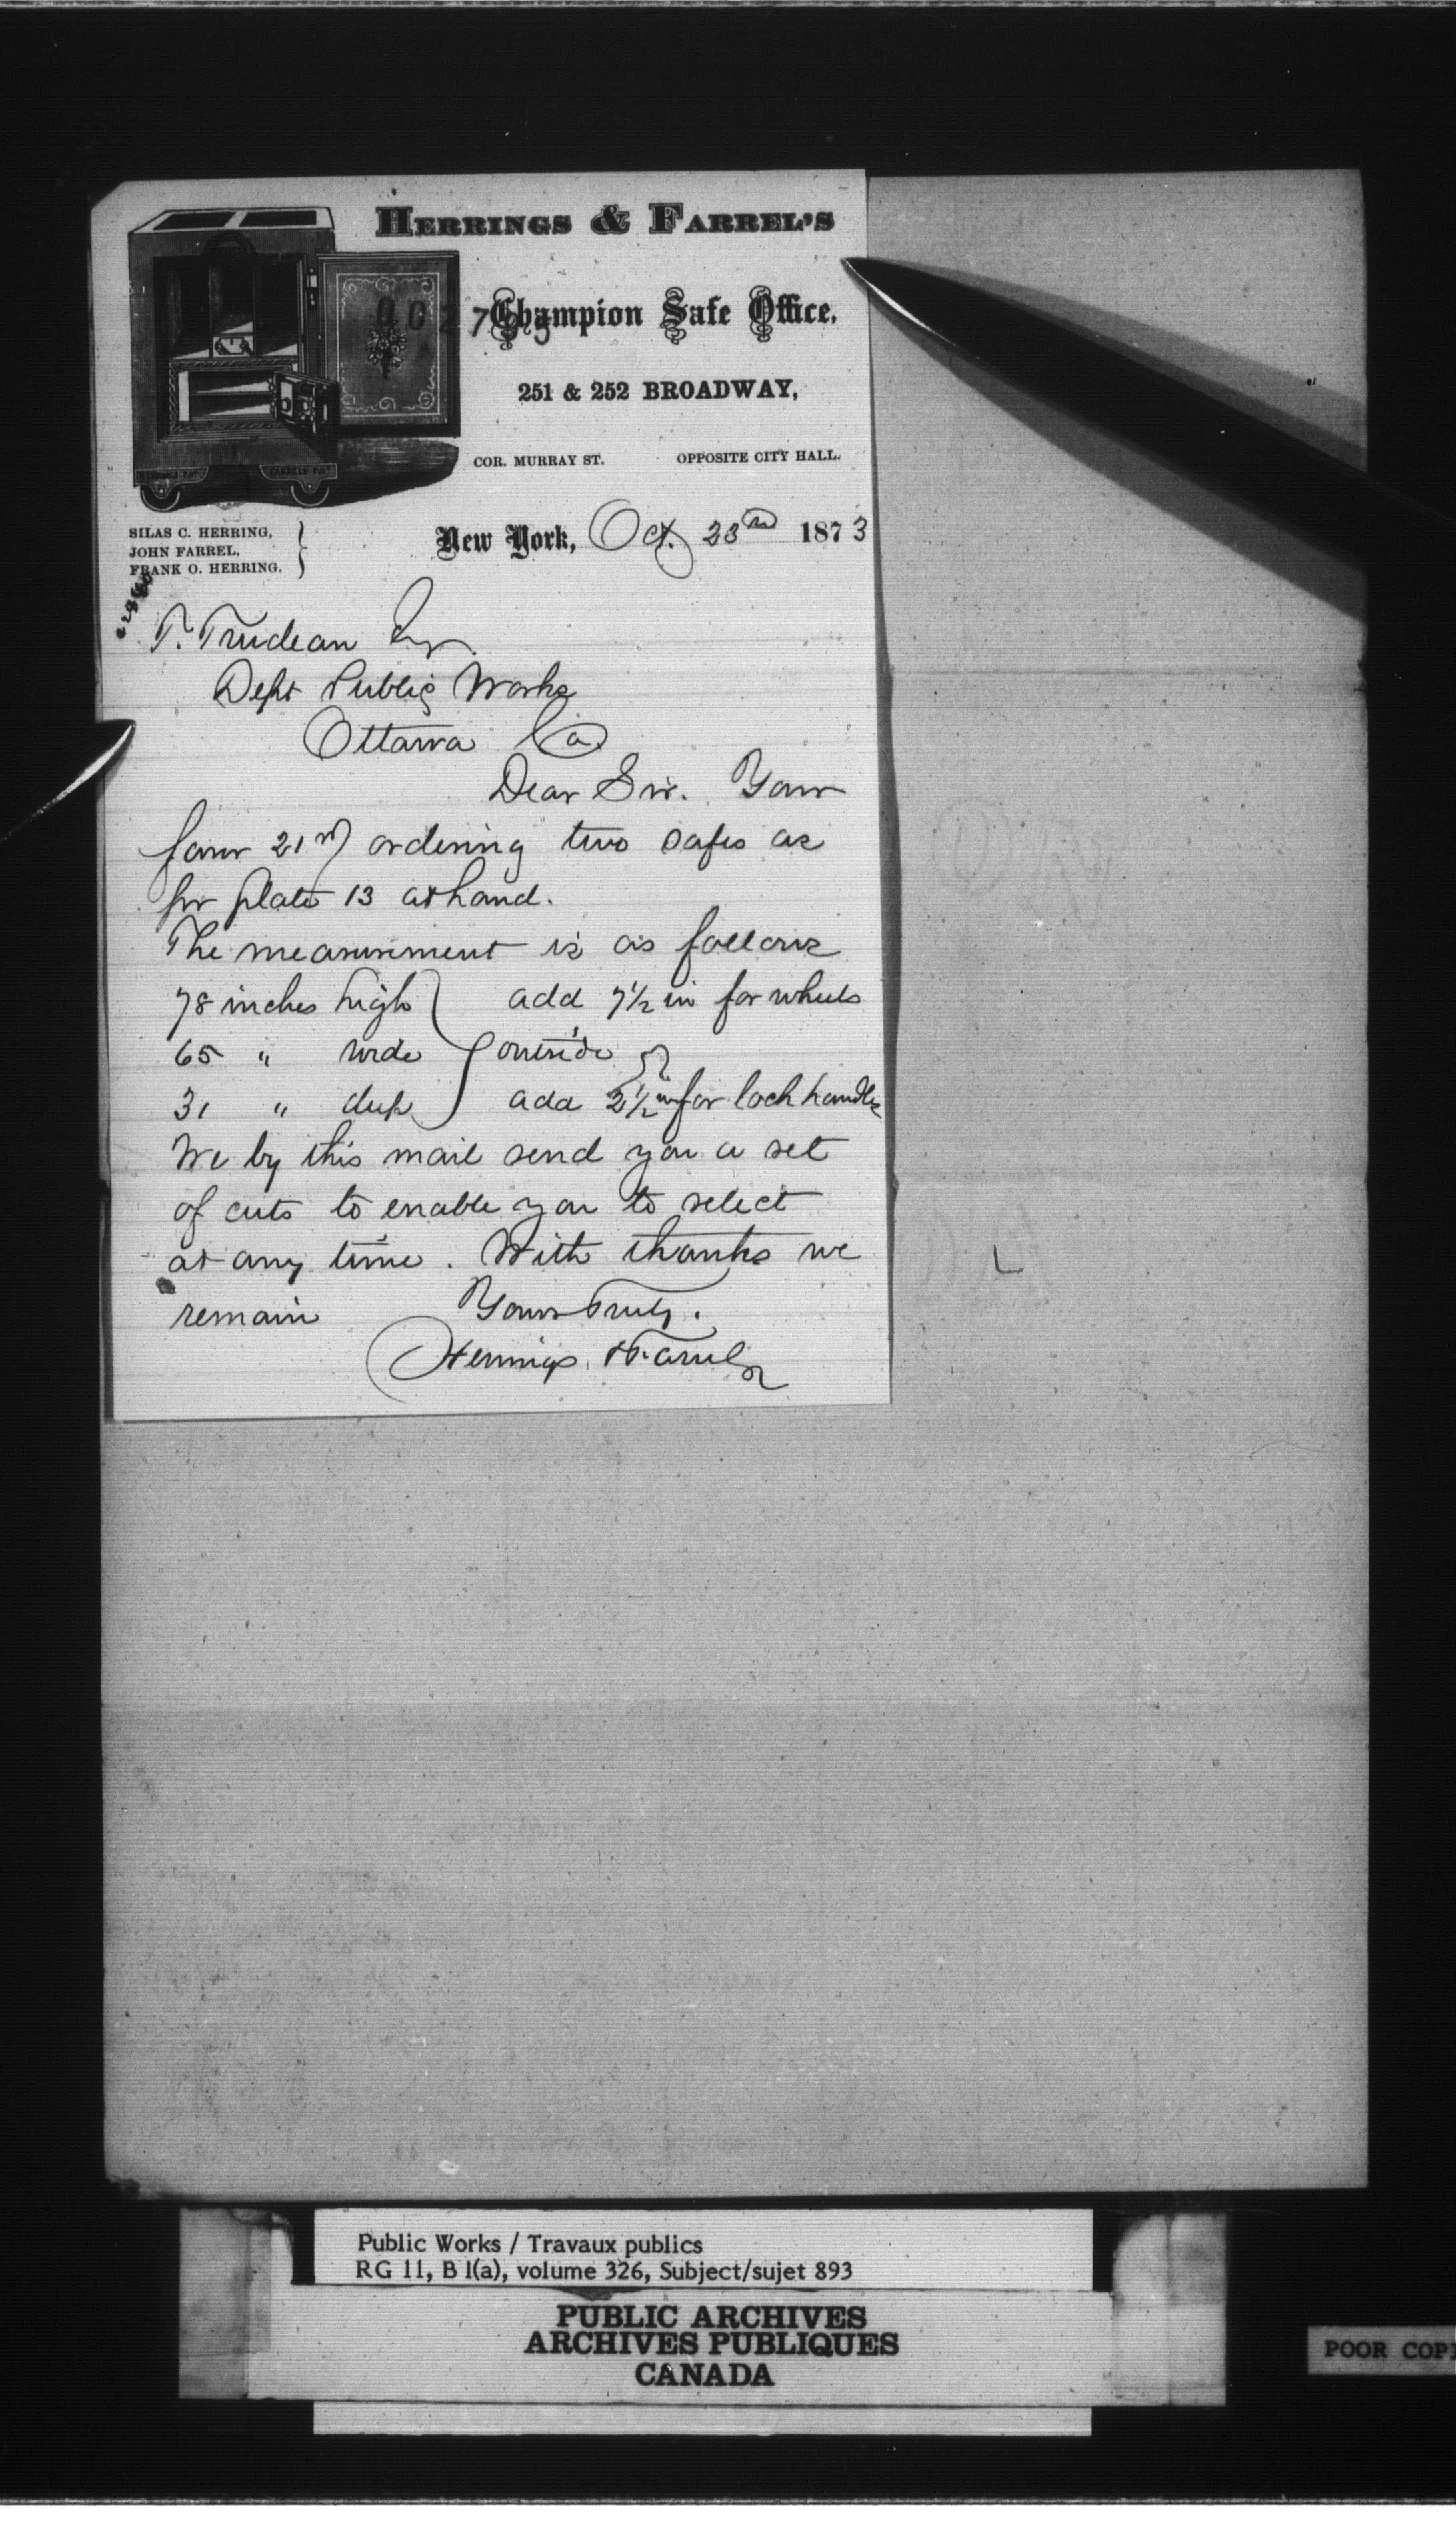 HERRINGS & FARREL'S
Champion Safe Office,
251 & 252 BROADWAY,
COR. MURRAY ST. OPPOSITE CITY HALL.
SILAS C. HERRING,
JOHN FARREL,
FRANK O. HERRING.
New York, Oct. 23rd 1873
T. Trudeau Esqr
Dept Public Works
Ottawa Ca
Dear Sir. Your
favor 21st ordering two safes as
per plate 13 at hand.
The measurement is as follows
78 inches high add 7½ in for wheels
65 " wide outside
31 " deep add 2½ in for lock handle
We by this mail send you a set
of cuts to enable you to select
at any time. With thanks we
remain Yours Truly.
Herrings & Farrel
Public Works / Travaux publics
RG 11, B 1(a), volume 326, Subject/sujet 893
PUBLIC ARCHIVES
ARCHIVES PUBLIQUES
CANADA
POOR COP